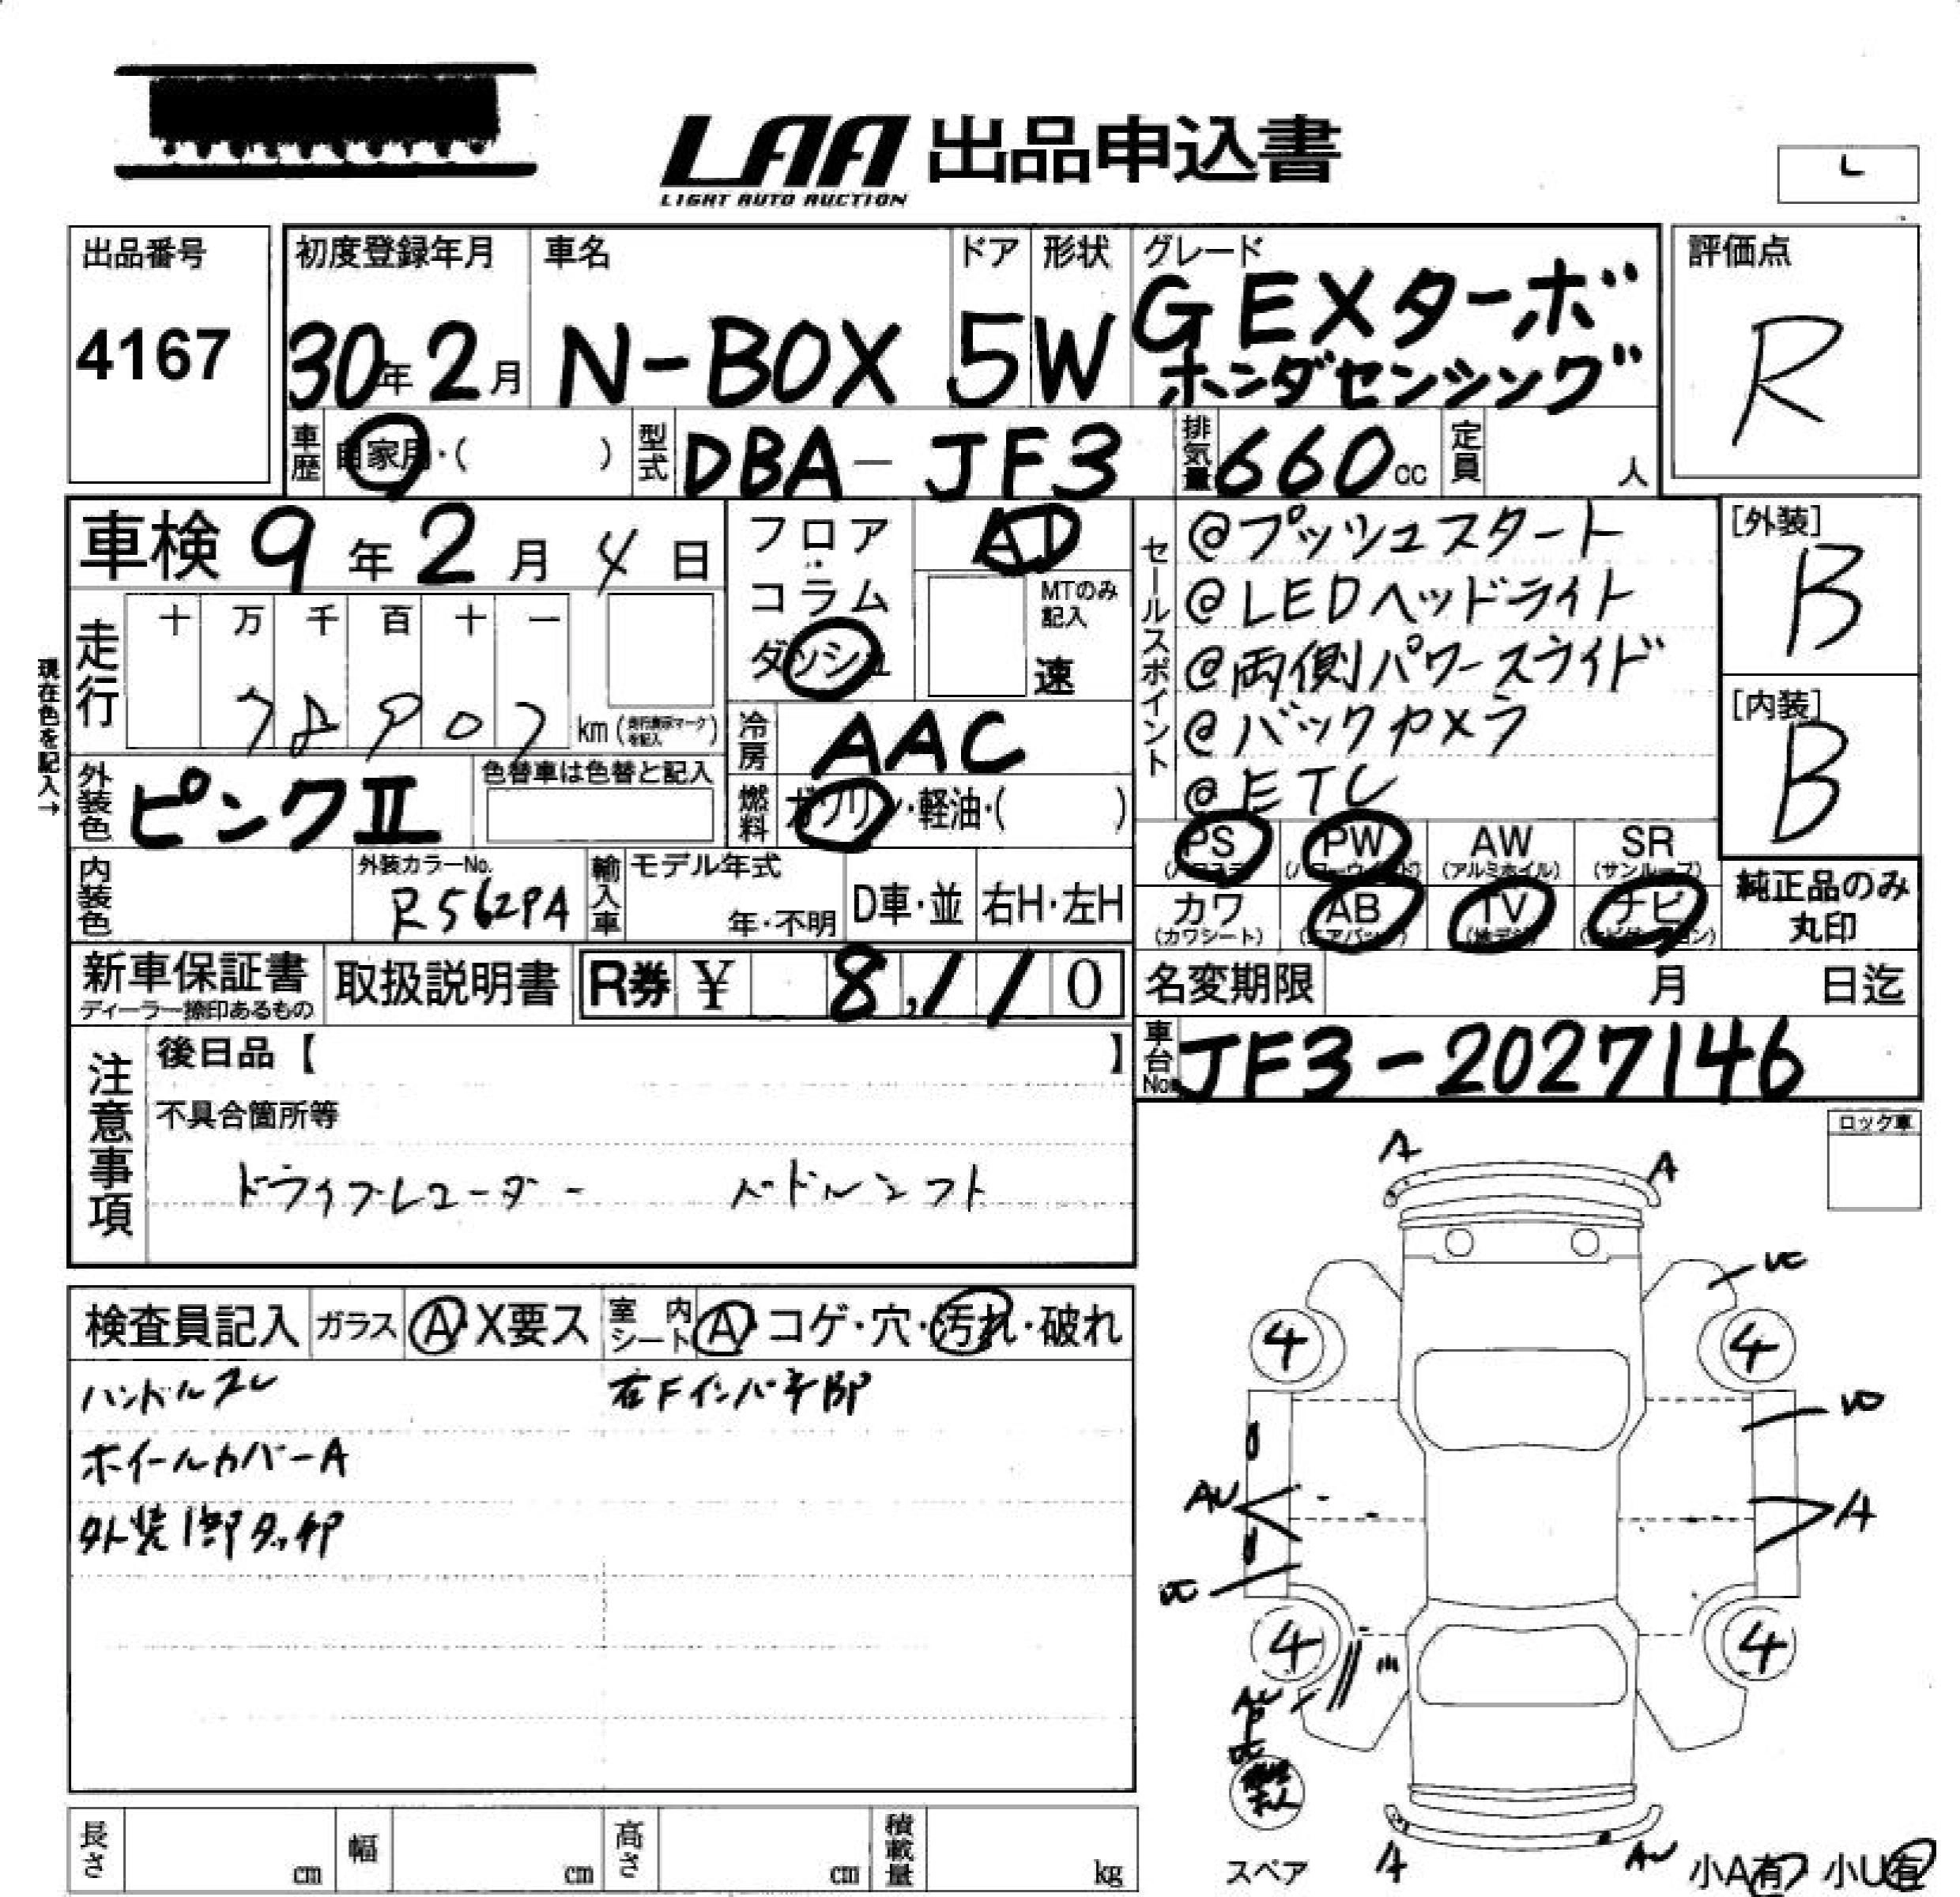 LAA 出品申込書
LIGHT AUTO AUCTION
L
出品番号
4167
初度登録年月
30年2月
車名
N-BOX
ドア
5
形状
W
グレード
G EXターボ
ホンダセンシング
評価点
R
車歴
自家用・( )
型式
DBA-JF3
排気量
660cc
定員
人
車検 9年2月4日
フロア・
コラム
ダッシュ
AT
MTのみ
記入
速
セールスポイント
@プッシュスタート
@LEDヘッドライト
@両側パワースライド
@バックカメラ
@ETC
[外装]
B
[内装]
B
現在色を記入→
走行
十 万 千 百 十 一
78907
km (走行表示マークを記入)
冷房
AAC
外装色
ピンクⅡ
色替車は色替と記入
燃料
ガソリン・軽油・( )
PS PW AW SR
(パワステ) (パワーウィンド) (アルミホイル) (サンルーフ)
カワ AB TV ナビ
(カワシート) (エアバッグ) (地デジ) (ナビゲーション)
純正品のみ
丸印
内装色
外装カラーNo.
R562PA
輸入車
モデル年式
年・不明
D車・並
右H・左H
新車保証書
ディーラー捺印あるもの
取扱説明書
R券 ¥ 8,110
名変期限 月 日迄
車台No.
JF3-2027146
注意事項
後日品【 】
不具合箇所等
ドライブレコーダー パドルシフト
ロック車
検査員記入
ガラス
A・X要ス
室内シート
A・コゲ・穴・汚れ・破れ
ハンドルスレ
ホイールカバーA
外装1部タッチP
A
A
4
4
AU
A
4
4
A
AU
スペア
小A有 小U有
長さ cm
幅 cm
高さ cm
積載量 kg